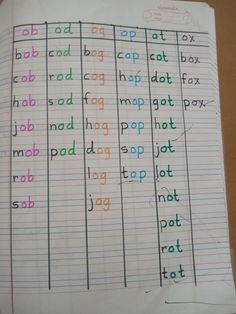 ob od og op ot ox
bob cod bog cop cot box
cob rod cog hop dot fox
hob sod fog mop got pox
job nod hog pop hot
mob pod dog sop jot
rob log top lot
sob jog not
pot
rot
tot